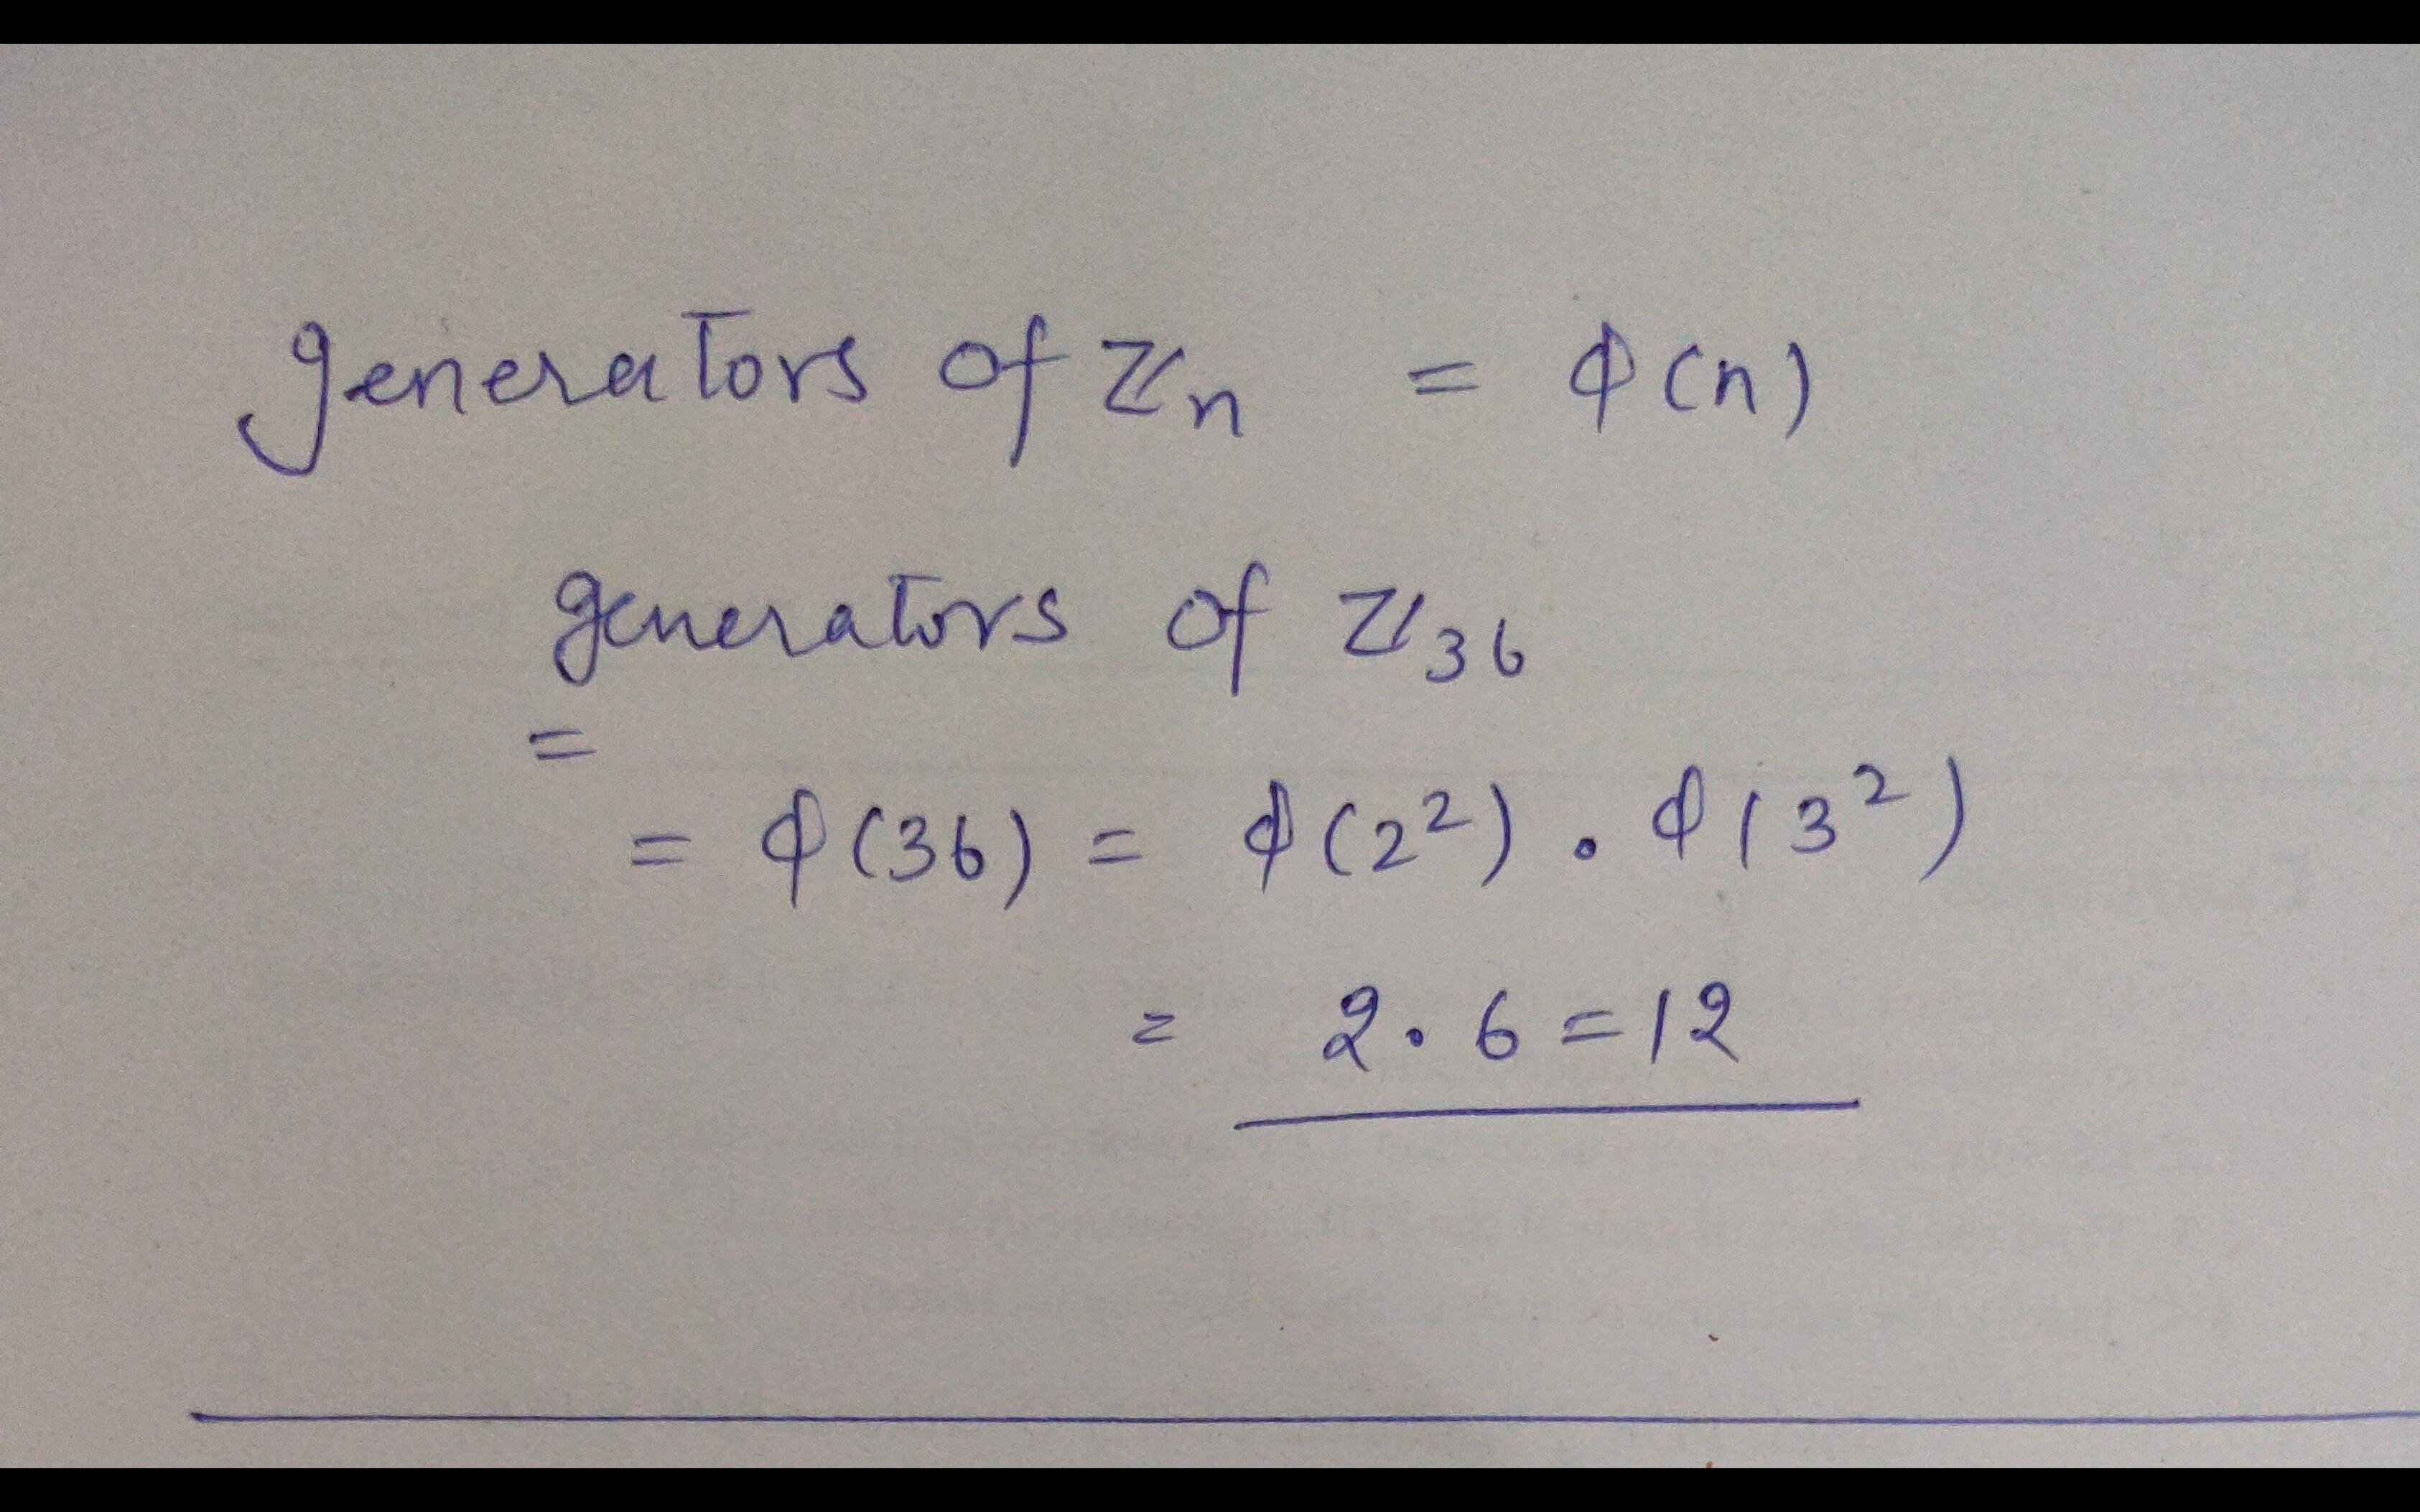 generators of ℤn = ϕ(n)
generators of ℤ36
=
= ϕ(36) = ϕ(2²) . ϕ(3²)
= 2 . 6 = 12